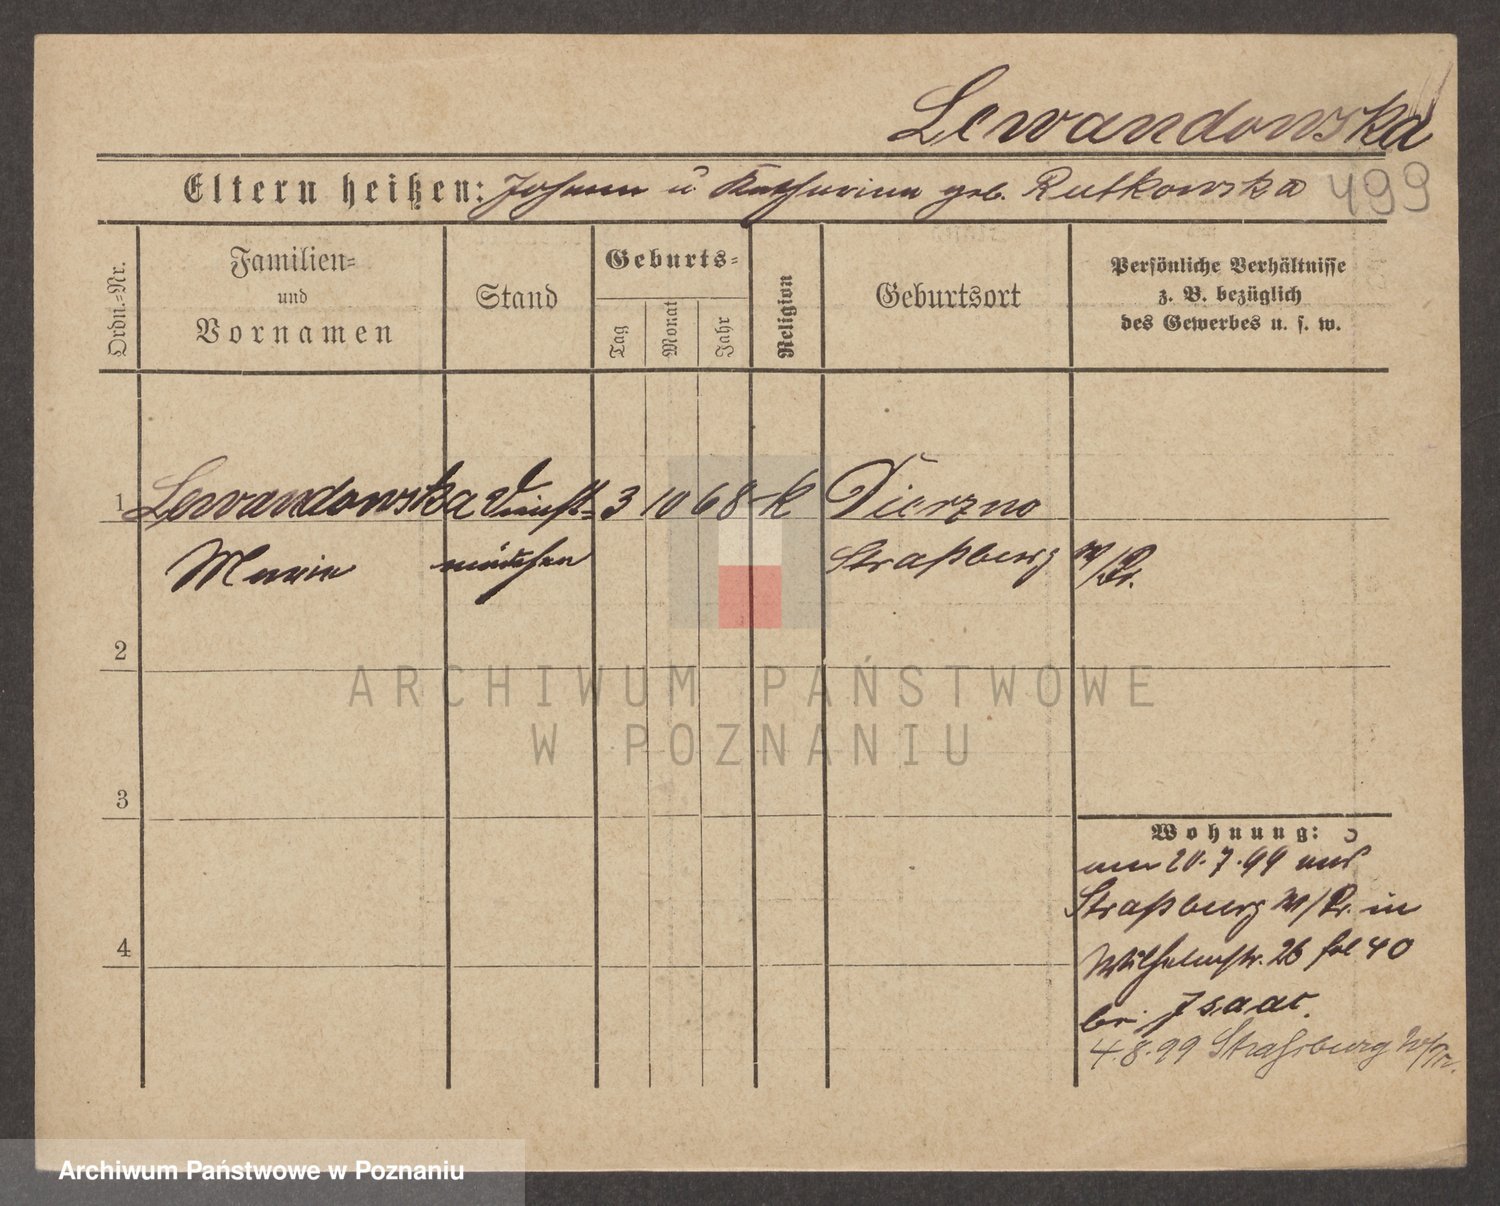 Lewandowska
Eltern heißen: Johann u Katharina geb. Rutkowska 499
Ordn.-Nr.
Familien-
und
Vornamen
Stand
Geburts-
Tag
Monat
Jahr
Religion
Geburtsort
Persönliche Verhältnisse
z. B. bezüglich
des Gewerbes u. s. w.
1 Lewandowska Dienst- 3 10 68 k Dierzno
Marie mädchen Straßburg W/Pr.
2
ARCHIWUM PAŃSTWOWE
W POZNANIU
3
Wohnung:
am 20.7.99 aus
Straßburg W/Pr. in
Wilhelmstr. 26 fol 40
bei Isaac.
4
4.8.99 Strassburg W/Pr.
Archiwum Państwowe w Poznaniu